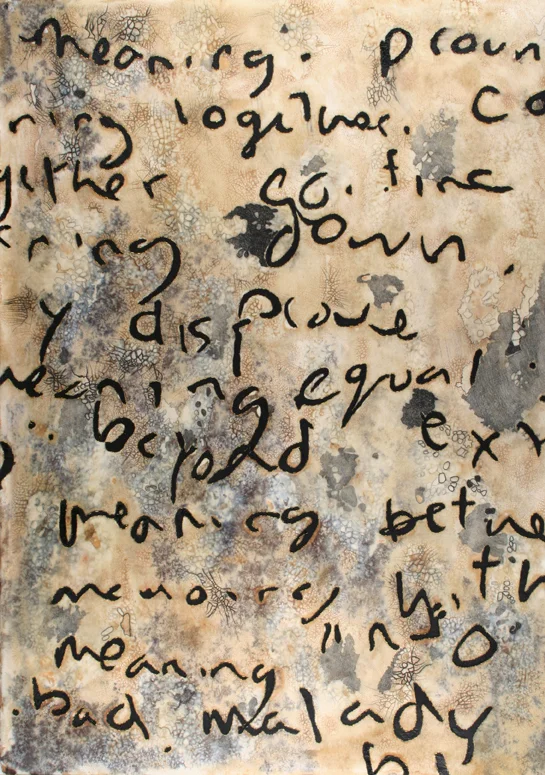 meaning. proun
ning together. co
gether go. find
ring down.
y disprove
meaning equal.
beyond ex
meaning betwe
memoirs, with
meaning into
. bad malady